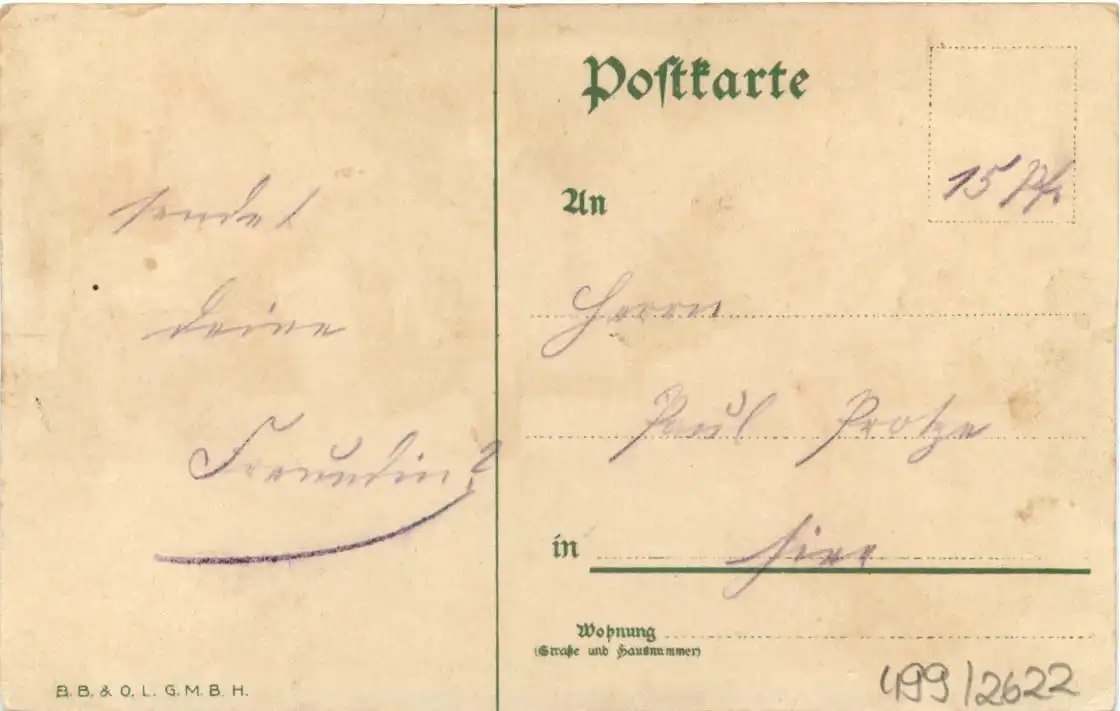 sendet
deine
Freundin?
B.B. & O.L. G.M.B.H.
Postkarte
15 Pf.
An
Herrn
Paul Protze
in hier
Wohnung
(Straße und Hausnummer)
499/2622